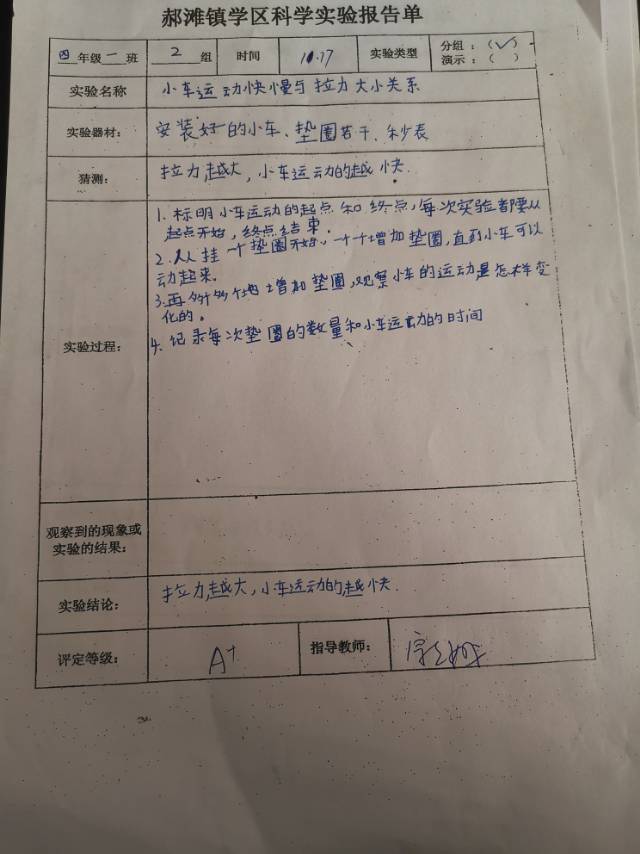 郝滩镇学区科学实验报告单
四年级一班 2组 时间 10.17 实验类型 分组:(✓)
演示:( )
实验名称 小车运动快慢与拉力大小关系
实验器材: 安装好的小车、垫圈若干、秒表
猜测: 拉力越大,小车运动的越快.
实验过程:
1.标明小车运动的起点和终点,每次实验都要从
起点开始,终点结束.
2.从挂一个垫圈开始,一个个增加垫圈,直到小车可以
动起来.
3.再多多地增加垫圈,观察小车的运动是怎样变
化的。
4.记录每次垫圈的数量和小车运动的时间
观察到的现象或
实验的结果:
实验结论: 拉力越大,小车运动的越快.
评定等级: A+ 指导教师: